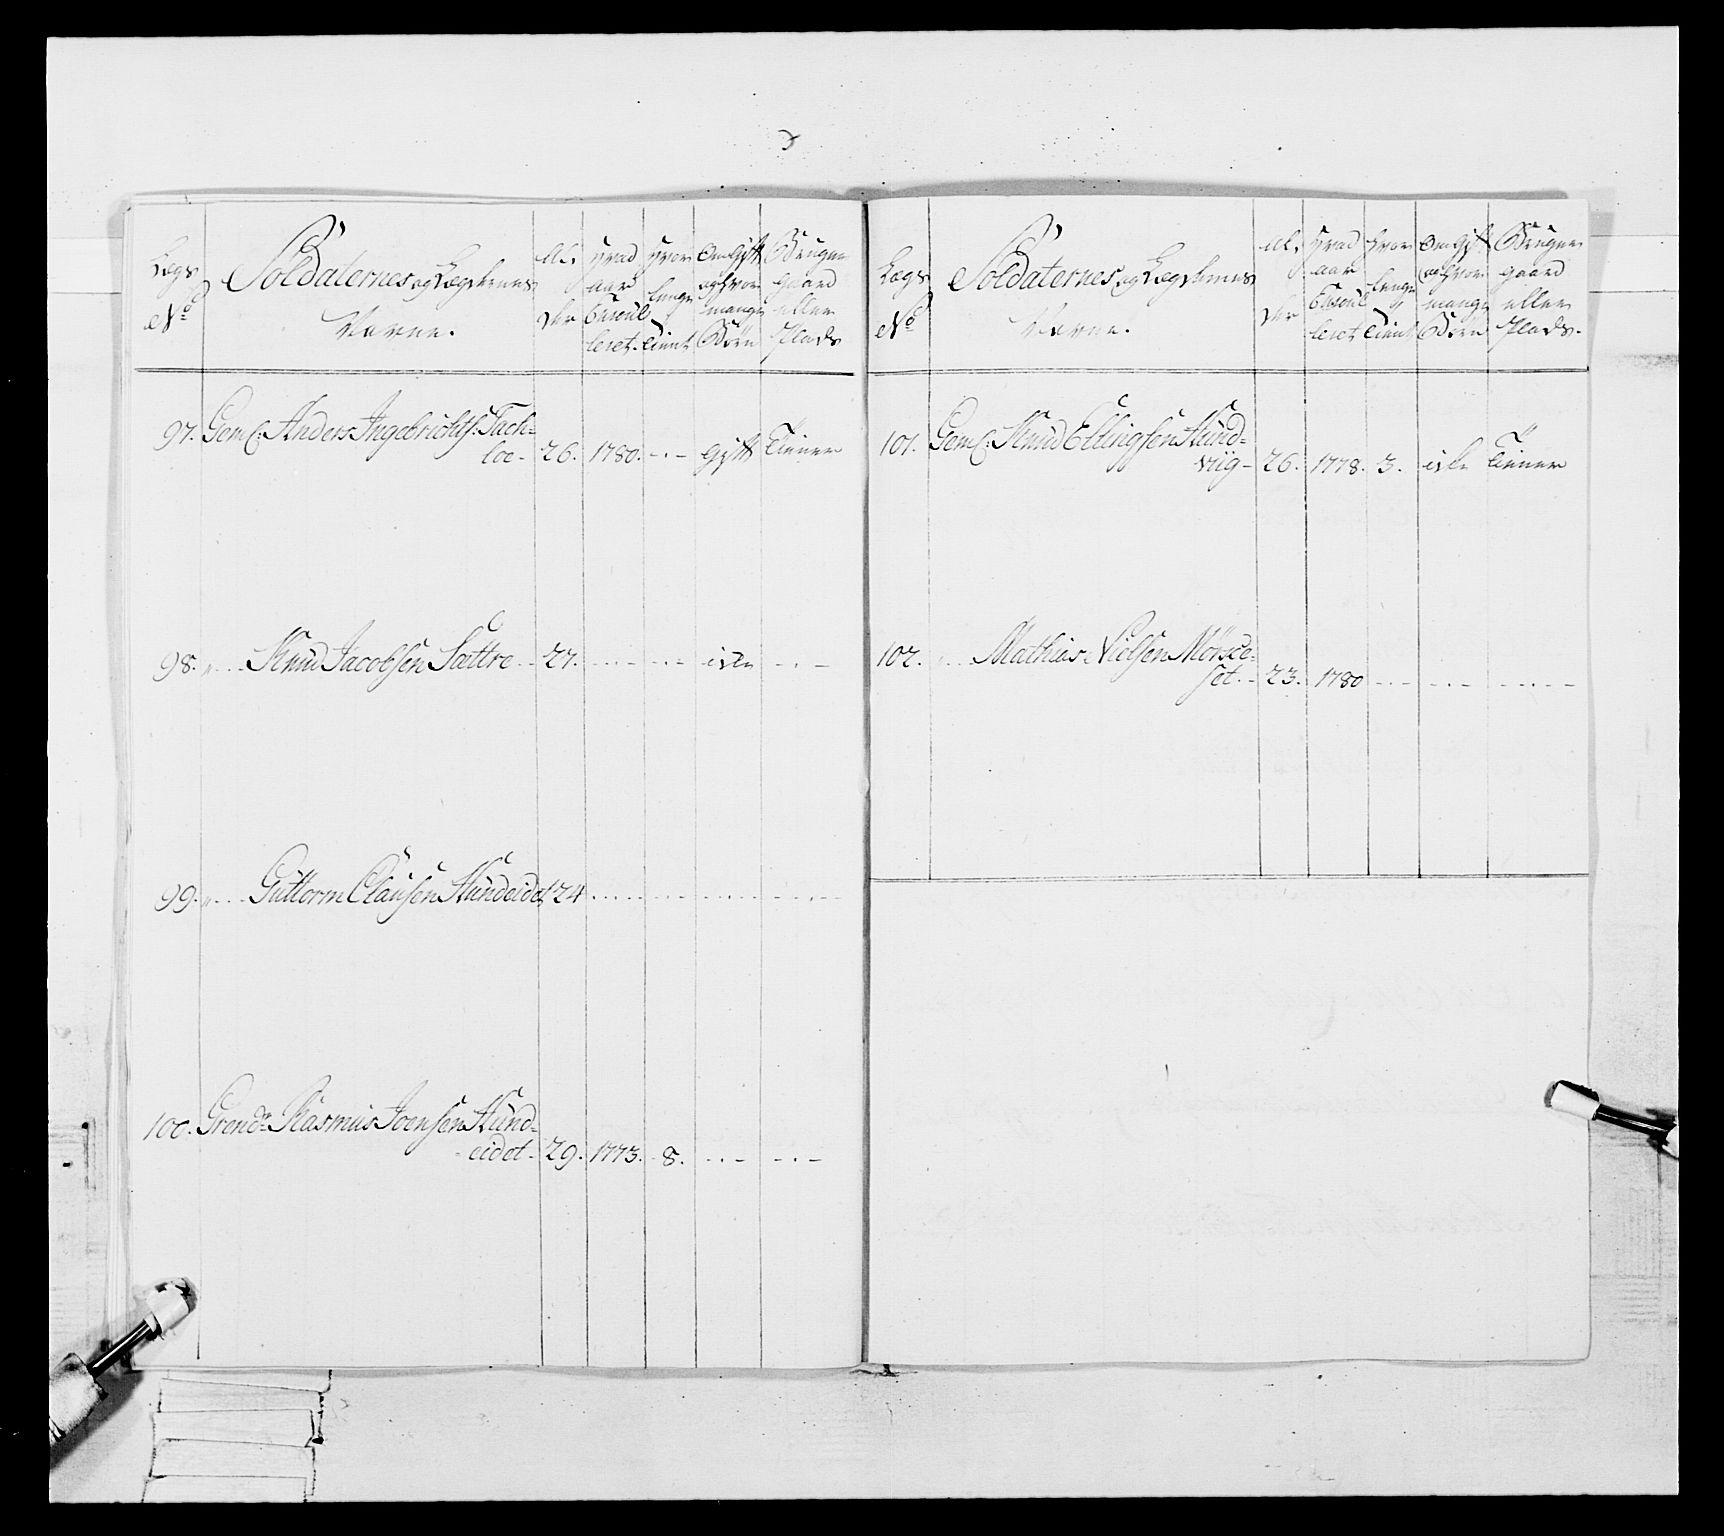 Lægs No
Soldaternes og Lægdernes Navne.
Al- der
Hvad aar Enroul- leret.
Hvor lenge Tient
Om Gift og hvor mange Börn
Bruger gaard eller Plads
97. Gemf: Anders Ingebrichtf: Tach-
loe- 26. 1780. - . - Gift Tiener
98. " . . . Knud Jacobsen Sættre - 27. . . . - - . - icke - . . -
99. " . . . Guttorm Clausen Hundeidet 24 . . . . . . . . . . . . -
100. Grendr Rasmus Joensen Hund-
eidet - 29. 1773. 8. . . . - - . . -
Lægs No
Soldaternes og Lægdernes Navne.
Al- der
Hvad aar Enroul- leret
Hvor lenge Tient
Om Gift og hvor mange Börn
Bruger gaard eller Plads.
101. Gemf: Knud Ellingsen Hund-
viig - 26. 1778. 3. icke Tiener
102. " . . . Mathias Nielsen Mörsce-
set. - 23. 1780 - . . - - . . - - . . . -